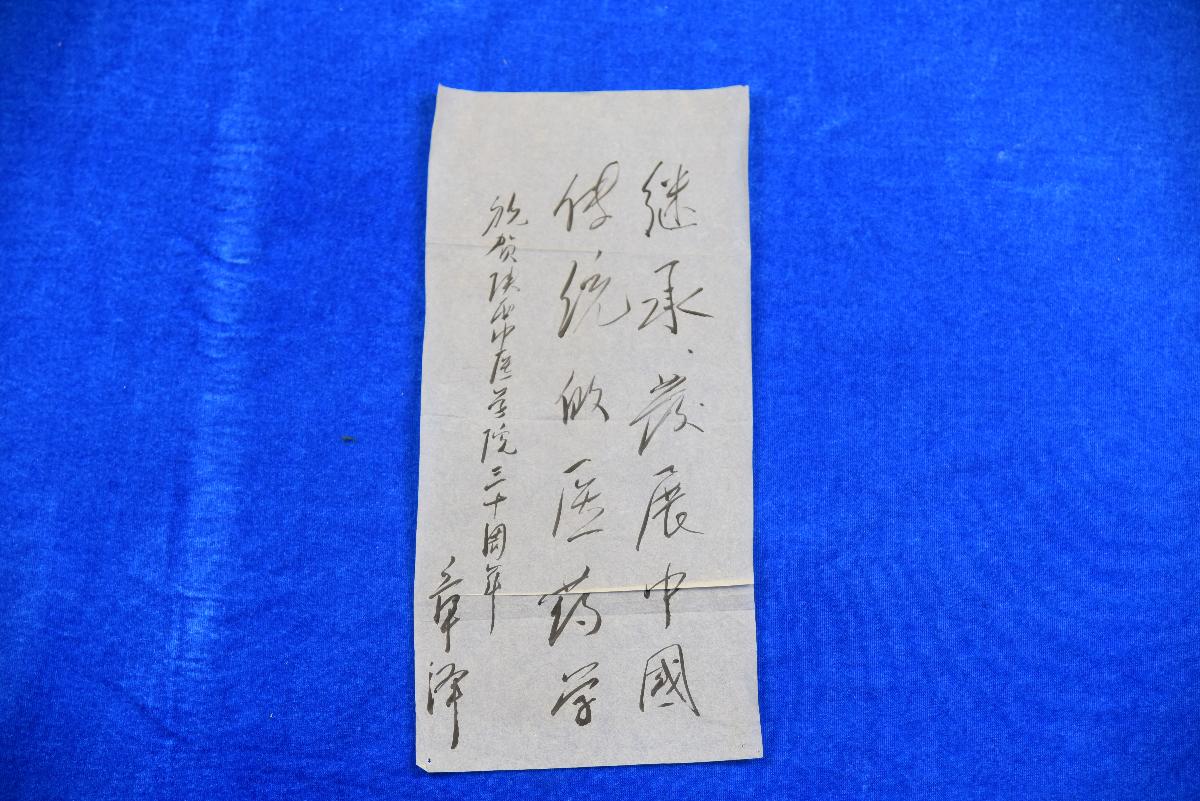 继承、发展中國
传统的医药学
祝贺陕西中医学院三十周年
章泽